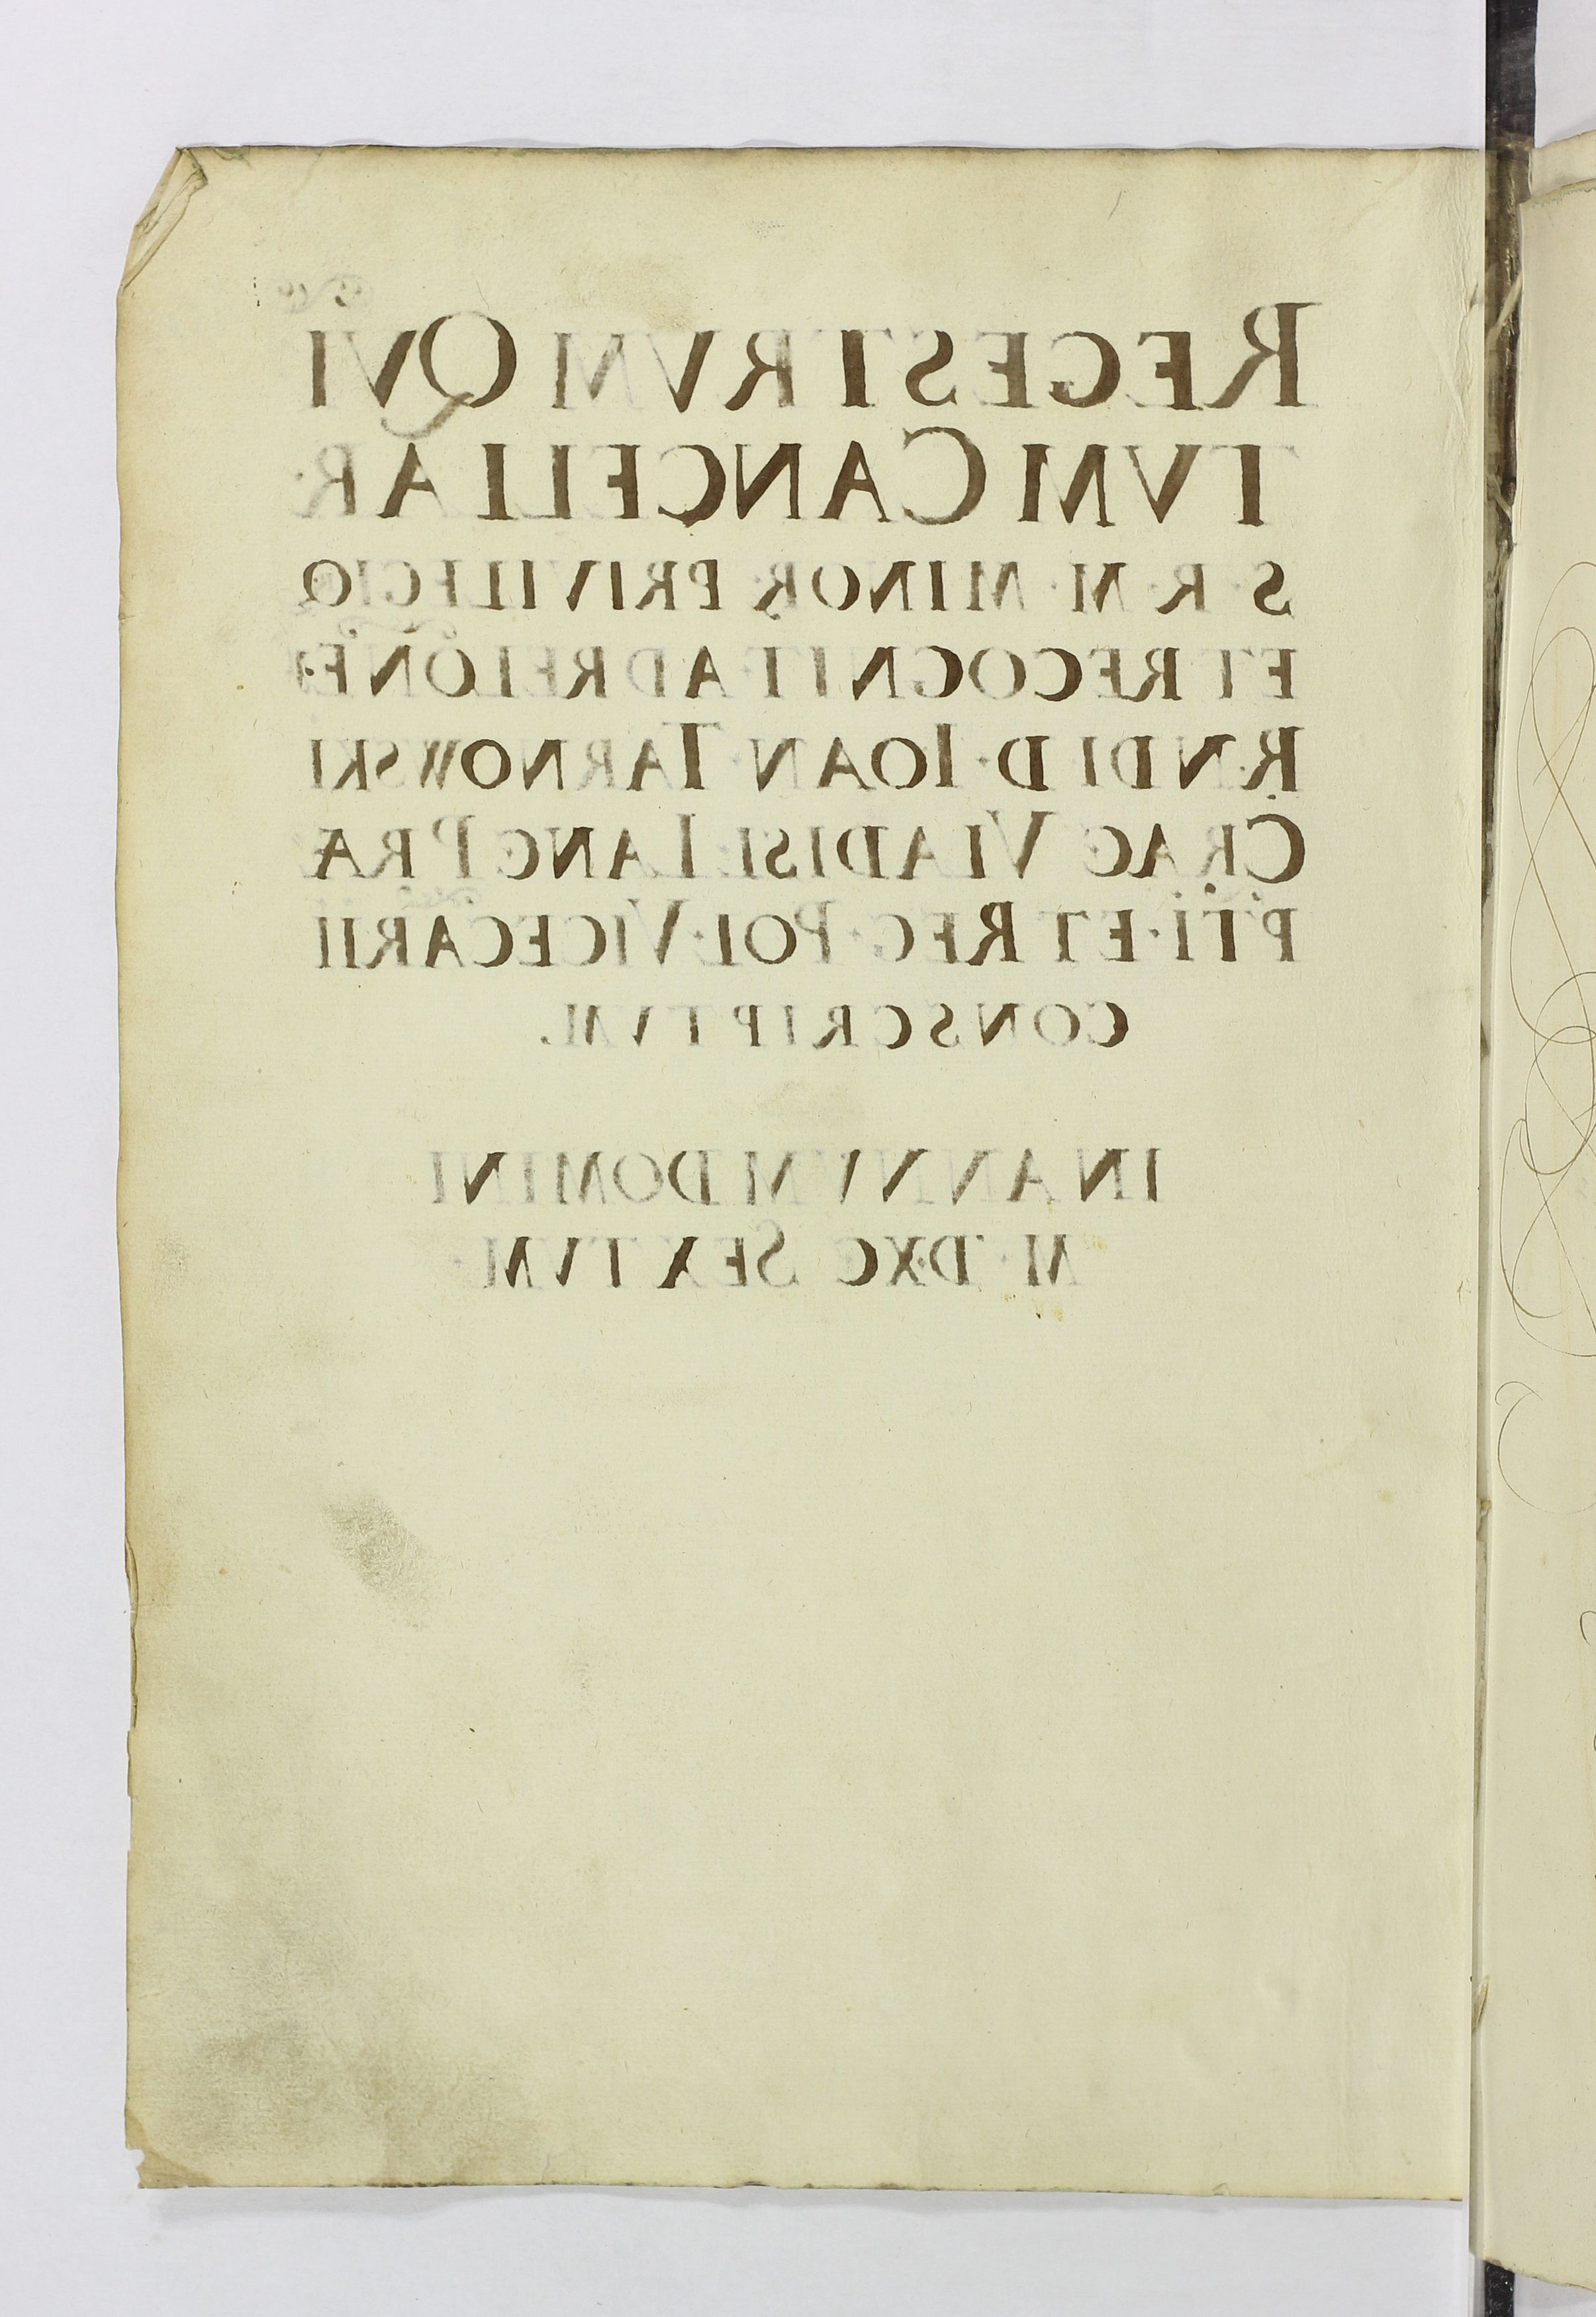 REGESTRVM QVI
TVM CANCELLAR
S R M MINOR PRIVILEGIO
ET RECOGNIT AD RELONE
RNDI D IOAN TARNOWSKI
CRAC VLADISL LANC PRÆ
PTI ET REG POL VICECARII
CONSCRIPTVM.
IN ANNVM DOMINI
M DXC SEXTVM